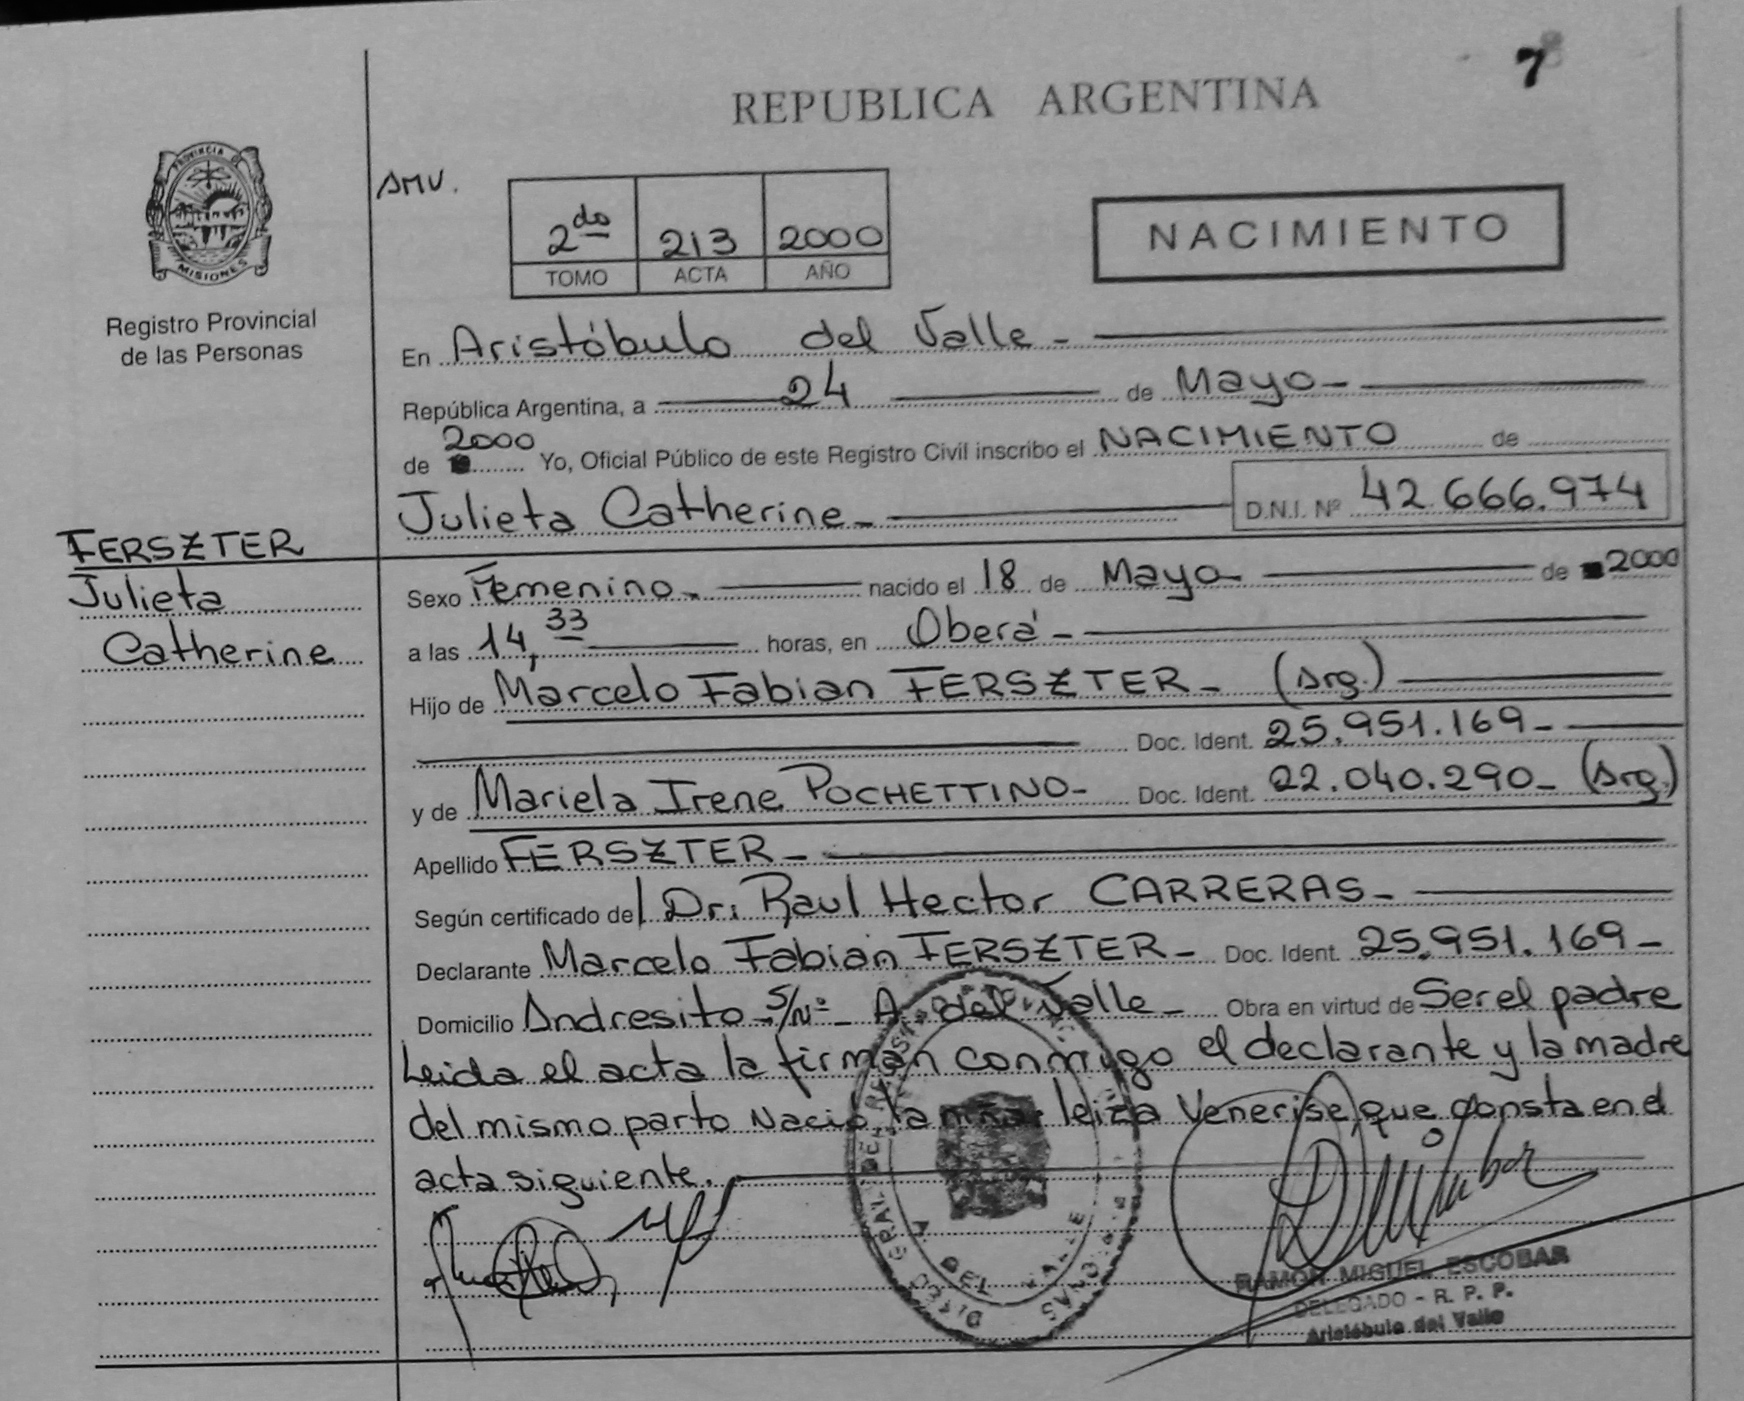 7
REPUBLICA ARGENTINA
PROVINCIA DE
MISIONES
Registro Provincial
de las Personas
AMV.
2do 213 2000
TOMO ACTA AÑO
NACIMIENTO
En Aristóbulo del Valle -
República Argentina, a 24 de Mayo -
de 2000 Yo, Oficial Público de este Registro Civil inscribo el NACIMIENTO de
Julieta Catherine - D.N.I. Nº 42.666.974
FERSZTER
Julieta
Catherine
Sexo Femenino - nacido el 18 de Mayo - de 2000
a las 14,33 horas, en Oberá -
Hijo de Marcelo Fabian FERSZTER - (Arg.)
Doc. Ident. 25.951.169 -
y de Mariela Irene POCHETTINO - Doc. Ident. 22.040.290 - (Arg.)
Apellido FERSZTER -
Según certificado del Dr: Raul Hector CARRERAS -
Declarante Marcelo Fabian FERSZTER - Doc. Ident. 25.951.169 -
Domicilio Andresito - S/Nº - A. del Valle - Obra en virtud de Ser el padre
Leida el acta la firman conmigo el declarante y la madre
del mismo parto Nació la niña leiza Venerise, que consta en el
acta siguiente.
RAMON MIGUEL ESCOBAR
DELEGADO - R. P. P.
Aristóbulo del Valle